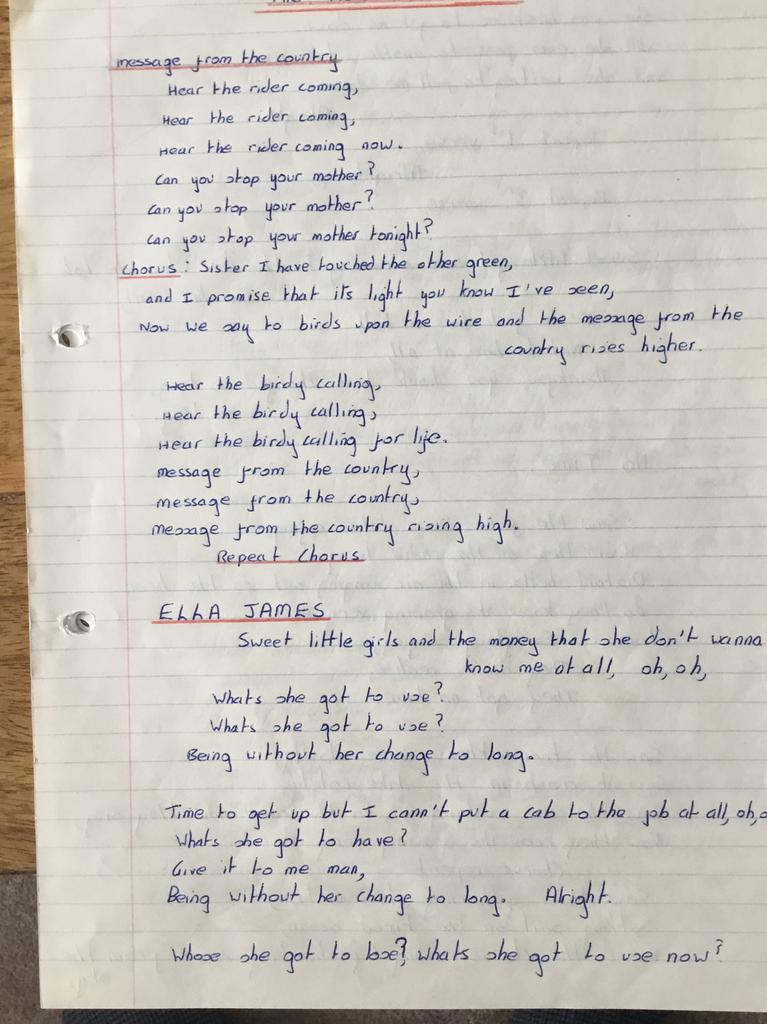 message from the country
Hear the rider coming,
Hear the rider coming,
Hear the rider coming now.
Can you stop your mother?
Can you stop your mother?
Can you stop your mother tonight?
Chorus: Sister I have touched the other green,
and I promise that its light you know I've seen,
Now we say to birds upon the wire and the message from the
country rises higher.
Hear the birdy calling,
Hear the birdy calling,
Hear the birdy calling for life.
message from the country,
message from the country,
message from the country rising high.
Repeat Chorus
ELLA JAMES
Sweet little girls and the money that she don't wanna
know me at all, oh, oh,
Whats she got to use?
Whats she got to use?
Being without her change to long.
Time to get up but I cann't put a cab to the job at all, oh,
Whats she got to have?
Give it to me man,
Being without her change to long. Alright.
Whose she got to lose? whats she got to use now?